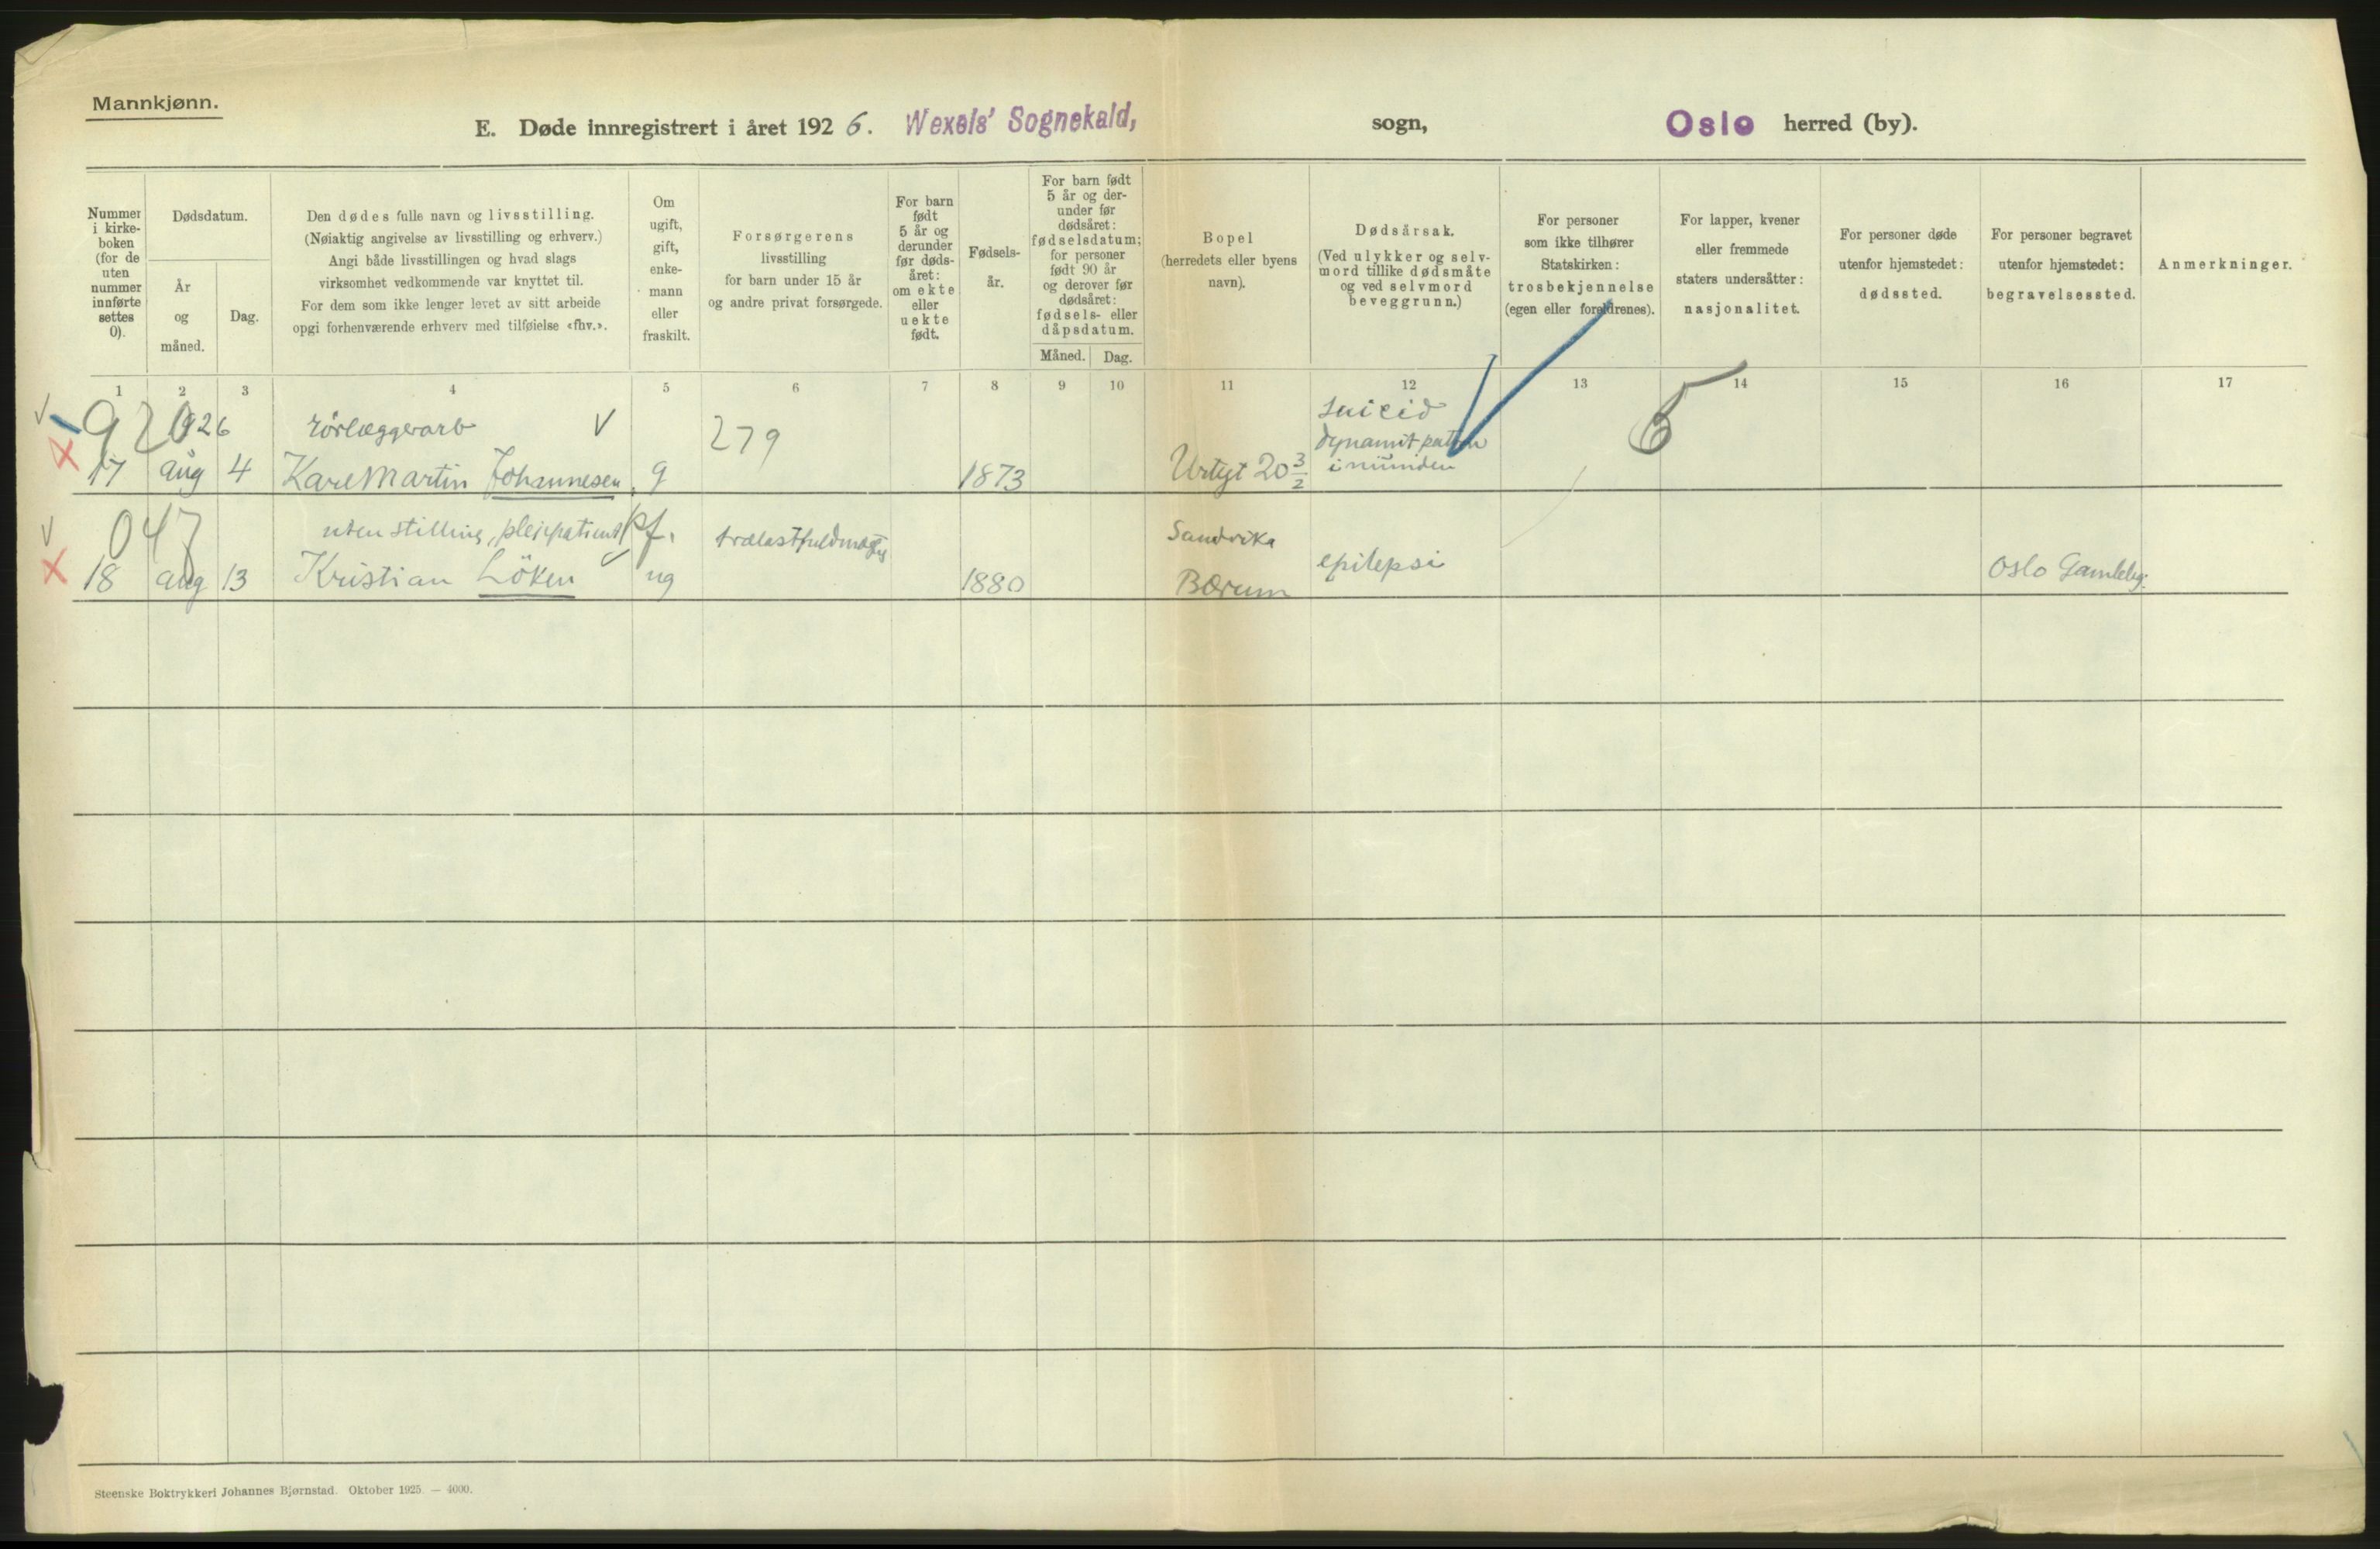 Mannkjønn.
E. Døde innregistrert i året 1926. Wexels' Sognekald, sogn, Oslo herred (by).
Nummer i kirke-boken (for de uten nummer innførte settes 0).
Dødsdatum.
År og måned.
Dag.
Den dødes fulle navn og livsstilling.
(Nøiaktig angivelse av livsstilling og erhverv.)
Angi både livsstillingen og hvad slags
virksomhet vedkommende var knyttet til.
For dem som ikke lenger levet av sitt arbeide
opgi forhenværende erhverv med tilføielse «fhv.».
Om ugift, gift, enke-mann eller fraskilt.
Forsørgerens
livsstilling
for barn under 15 år
og andre privat forsørgede.
For barn født 5 år og derunder før døds-året: om ekte eller uekte født.
Fødsels-år.
For barn født 5 år og der-under før dødsåret: fødselsdatum; for personer født 90 år og derover før dødsåret: fødsels- eller dåpsdatum.
Måned.
Dag.
Bopel
(herredets eller byens
navn).
Dødsårsak.
(Ved ulykker og selv-
mord tillike dødsmåte
og ved selvmord
beveggrunn.)
For personer
som ikke tilhører
Statskirken:
trosbekjennelse
(egen eller foreldrenes).
For lapper, kvener
eller fremmede
staters undersåtter:
nasjonalitet.
For personer døde
utenfor hjemstedet:
dødssted.
For personer begravet
utenfor hjemstedet:
begravelsessted.
Anmerkninger.
1 2 3 4 5 6 7 8 9 10 11 12 13 14 15 16 17
920
1926 rørlæggerarb 279 suicid
dynamit
i munden
17 aug 4 Karl Martin Johannesen g 1873 Urtegt 20 3/2
6
047 uten stilling, pleiepatient pf. Sandvika
18 aug 13 Kristian Löken ug 1880 Bærum epilepsi Oslo Gamleby.
Steenske Boktrykkeri Johannes Bjørnstad. Oktober 1925. — 4000.